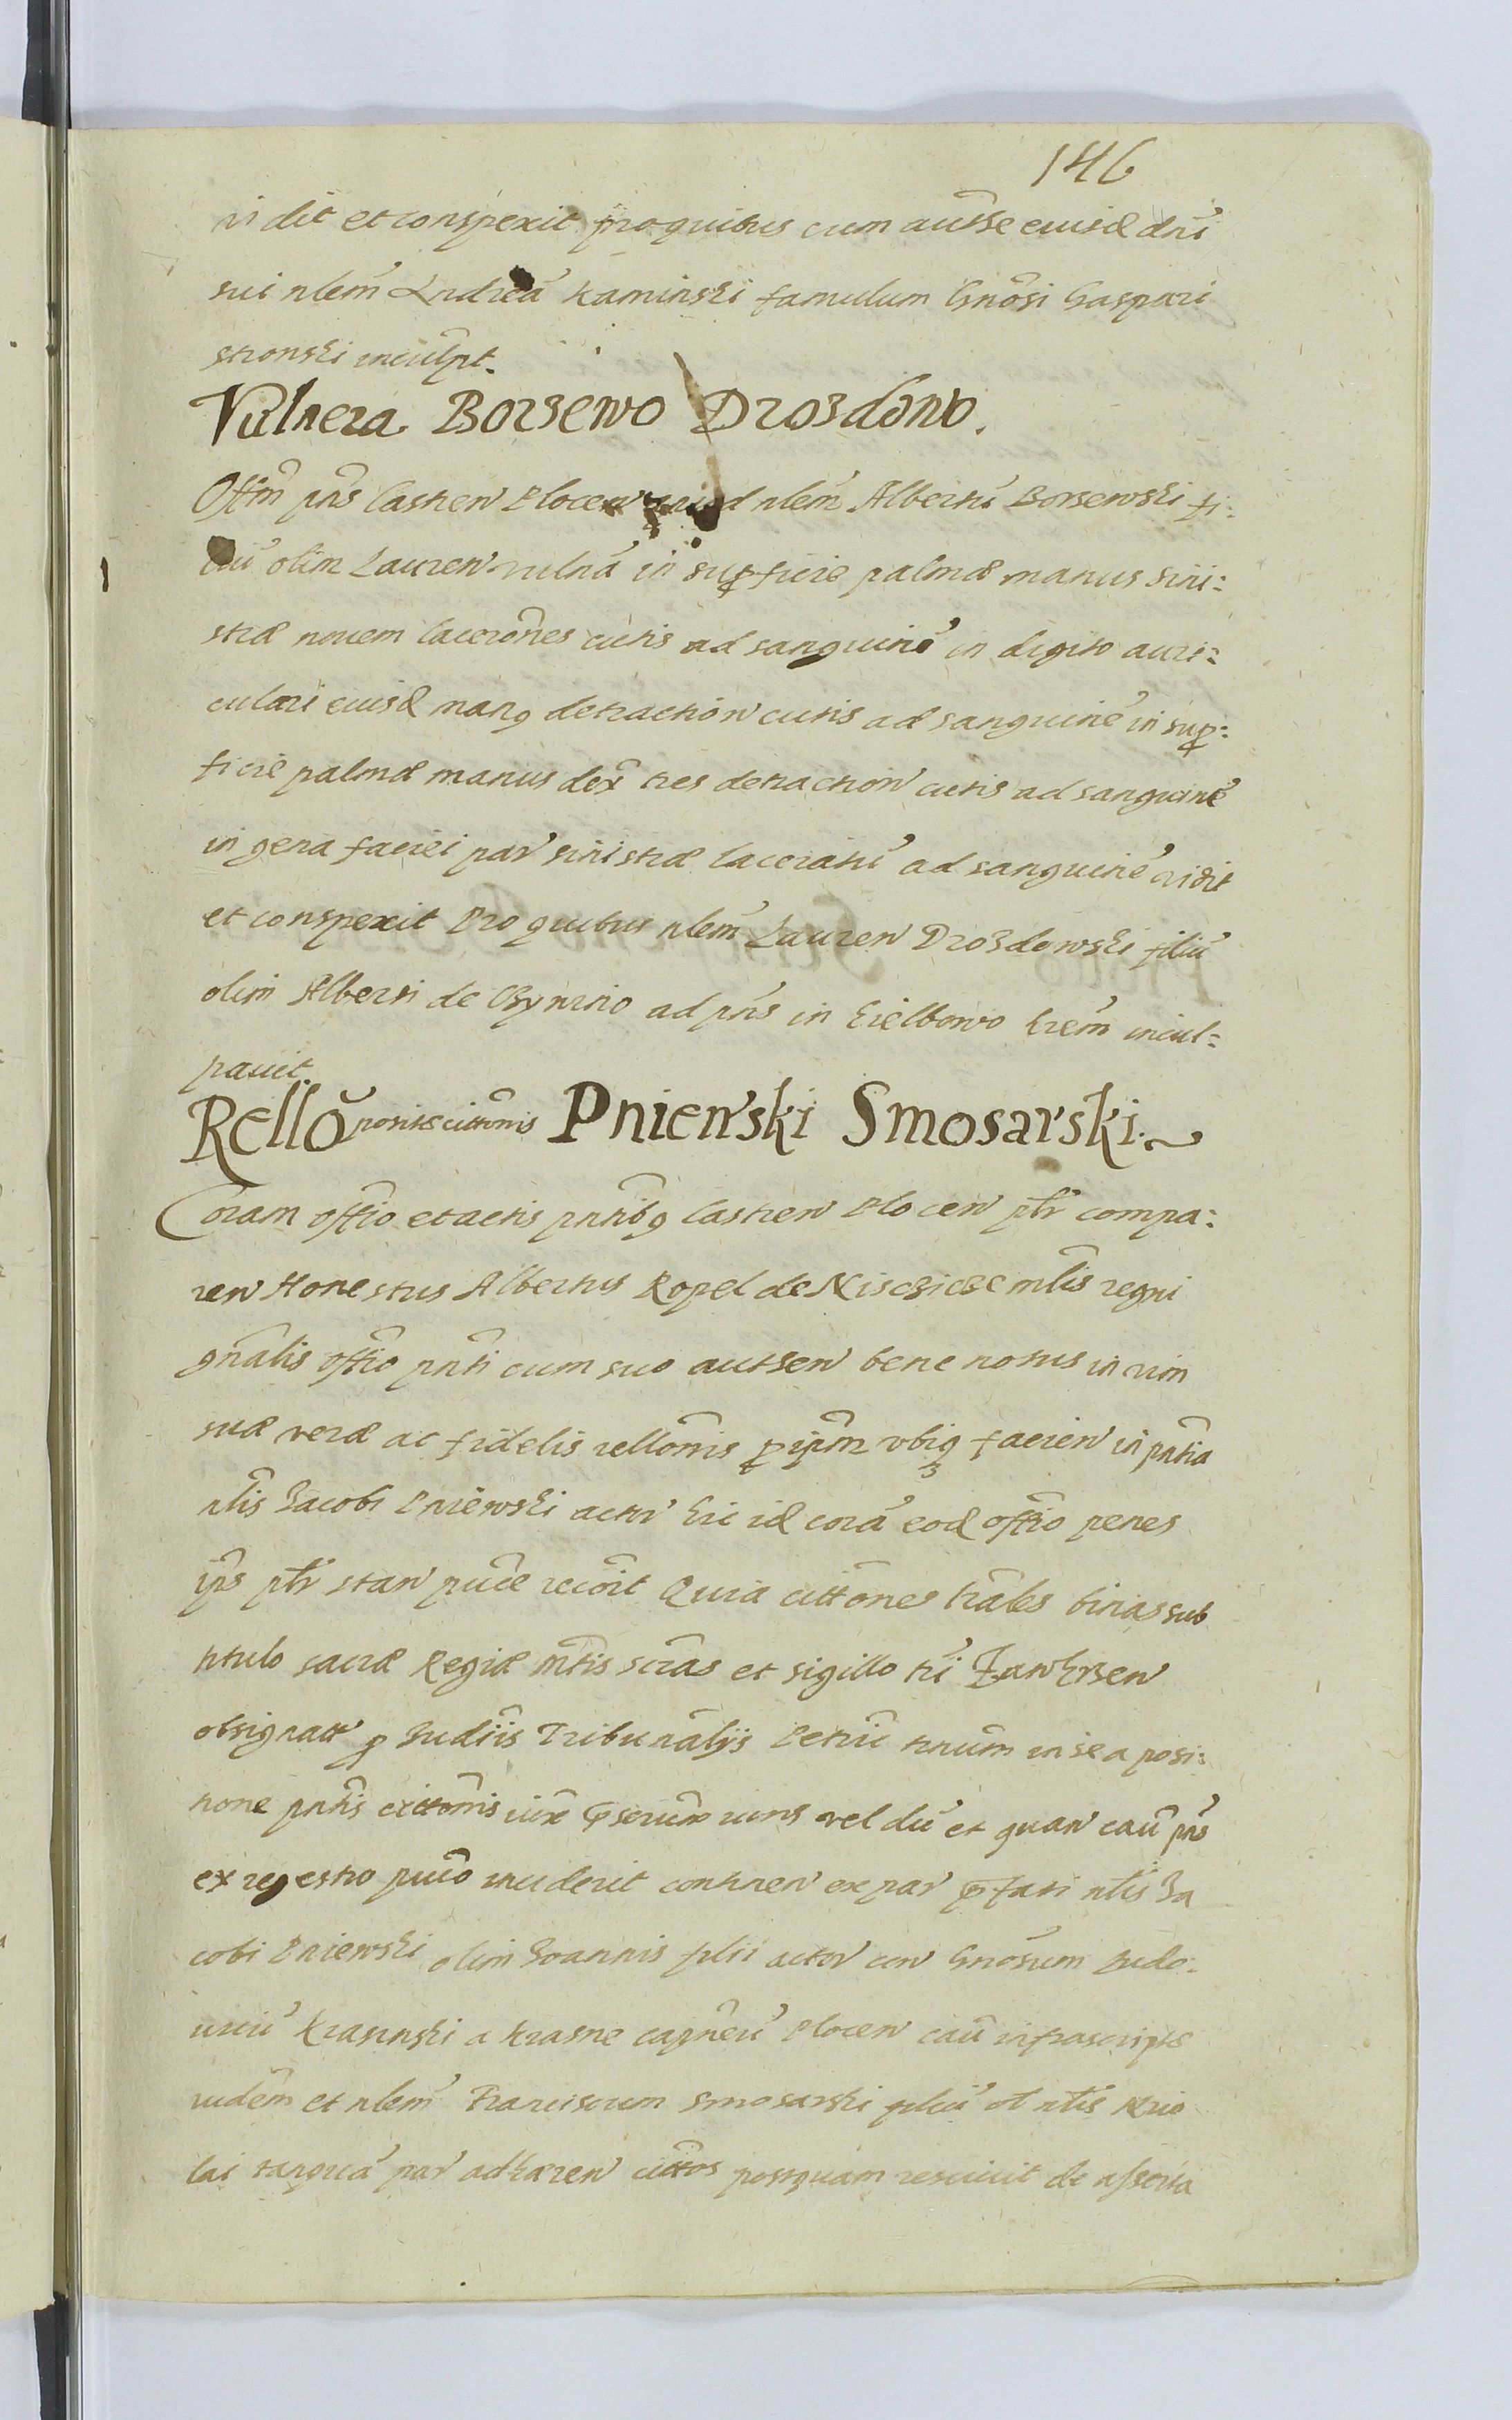 146
vidit et conspexit pro quibus cum authse eiusd dni
sui nlem Andrea Kaminski famulum Gnosi Gaspari
stronski inculpt.
Vulnera Borzewo Drozdowo.
Offm pns Castren Plocen nlem Albertu Borzewski fi:
liu olim Lauren vulna in supficie palmæ manus sini:
stræ novem lacerones cutis ad sanguine in digito auri:
culari eiusd manq detraction cutis ad sanguine in sup:
ficie palmæ manus dex tres detraction cutis ad sanguine
in gena faciei par sinistræ laceratu ad sanguine vidit
et conspexit Pro quibus nlem Lauren Drozdowski filiu
olim Alberti de ad pns in hrem incul:
pavit.
Rello posite cittonis Pniewski Smosarski.
Coram offio et actis pnntibq Castren Plocen ptr compa:
ren Honestus Albertus Ropel de mlis regni
gnalis offio pnti cum suo authen bene notus in vim
suæ veræ ac fidelis rellonis p ipm ubiq facien in pntia
nlis Jacobi Pniewski actor hic id cora eod offio penes
ips ptr stan puce recoit Quia cittones trales binas sub
titulo sacræ Regiæ mtis scras et sigillo tri Zawhrsen
obsignatt p Judiis Tribunalijs Petric tnum in se a posi:
tione pntis cittonis iux vel du et quan cau pns
ex regestro puco inciderit continen ex par pfati nlis Ja
cobi Pniewski olim Joannis filii actor con Gnosum Ludo:
vicu Krasinski a Krasne capneu Plocen cau infrascripte
iudem et nlem Franciscum Smosarski filiu ol nlis Nico
lai tanqua par adhæren cittos postquam rescivit de asserta